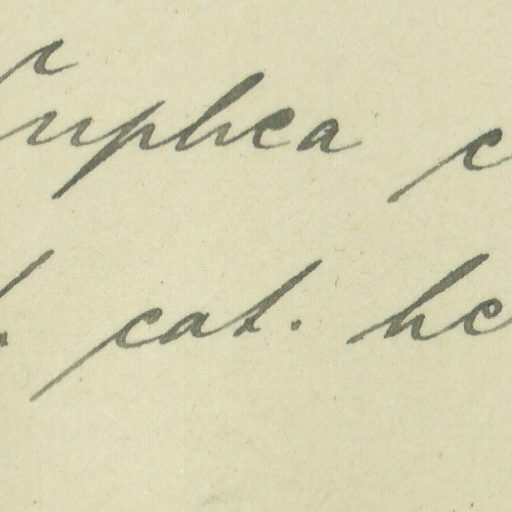 Cuphea c
cat. he